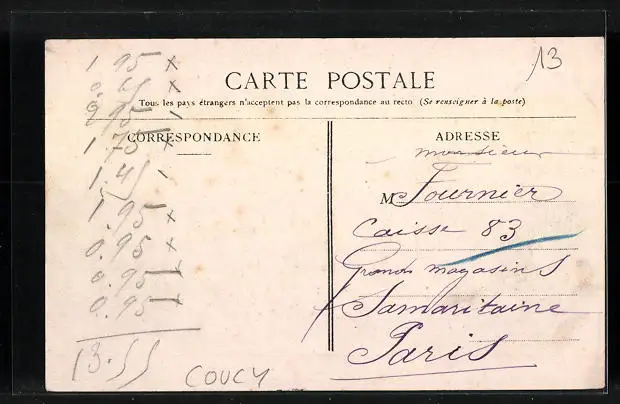 13
1 95 x
0.65 x
2 95 -
1.75 x
1.45 -
1.95 x
0.95 x
0.95
0.95
13.55
COUCY
CARTE POSTALE
Tous les pays étrangers n'acceptent pas la correspondance au recto (Se renseigner à la poste)
CORRESPONDANCE
ADRESSE
monsieur
M Fournier
Caisse 83
Grands magasins
Samaritaine
Paris